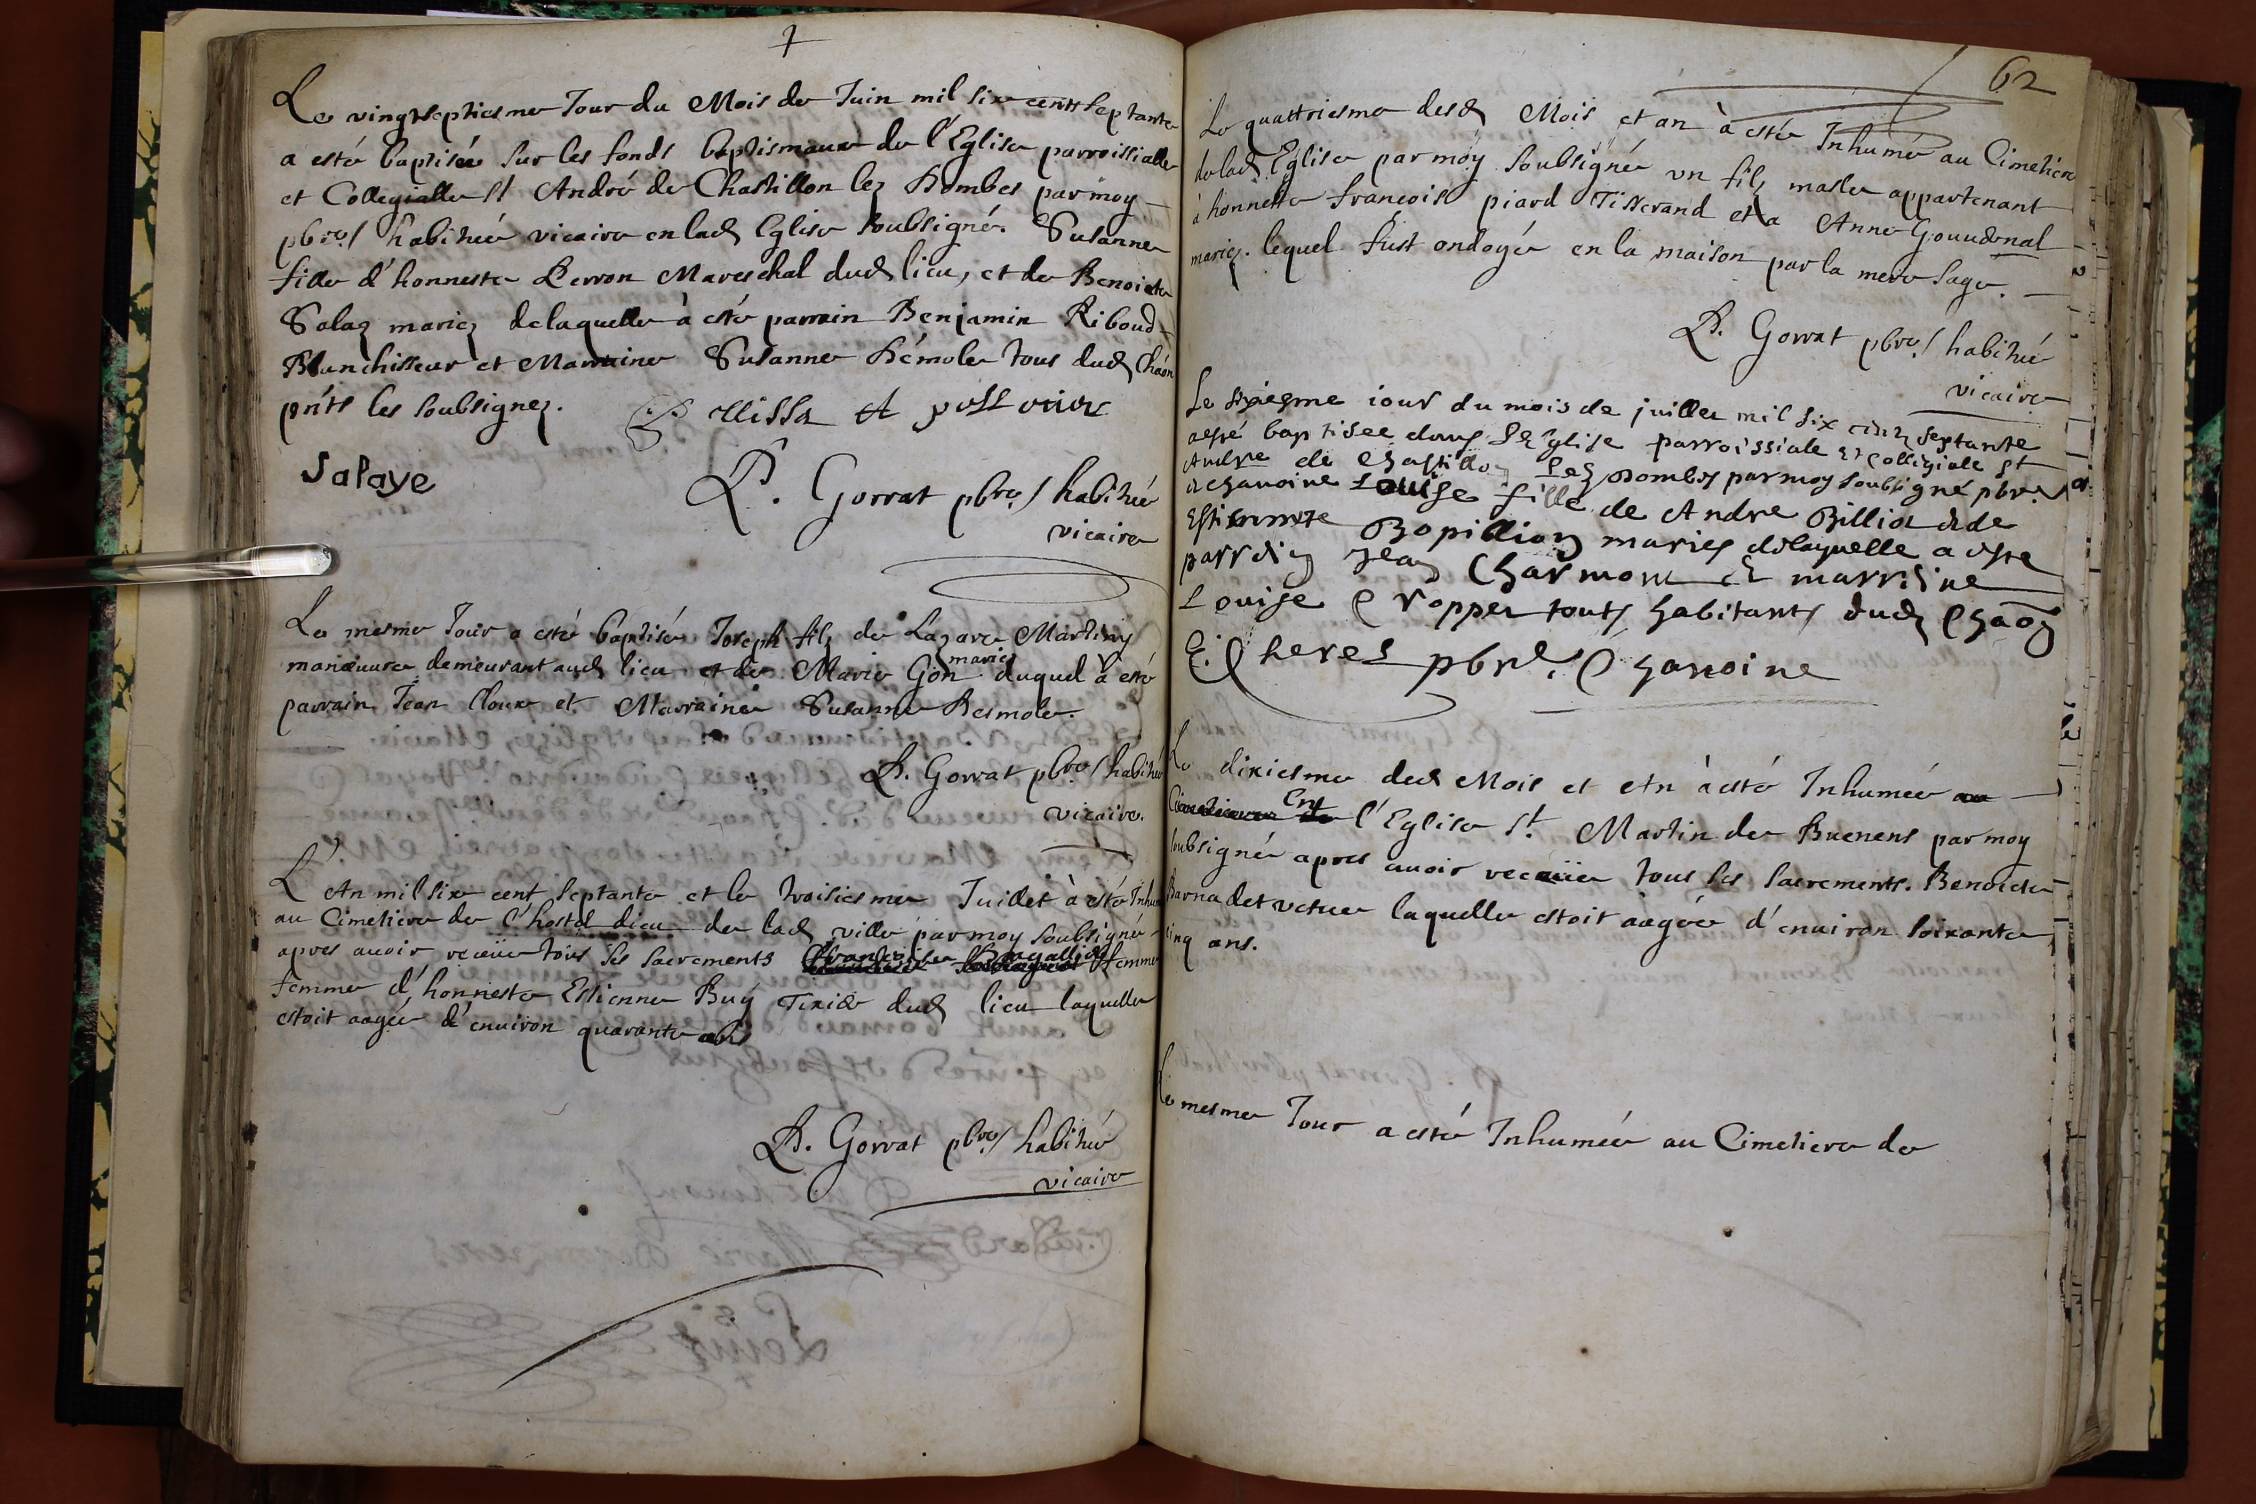 Le vingtseptiesme Jour du Mois de Juin mil six cents septante
a esté baptisée sur les fonds baptismaux de l'Eglise parroissialle
et Collegialle St André de Chastillon lez Dombes par moy
pbre habitué vicaire en lad Eglise soubsigné. Susanne
fille d'honneste Perron Mareschal dud lieu, et de Benoicte
Salaz mariez delaquelle à esté parrain Benjamin Riboud
Blanchisseur et Marraine Susanne Démole tous dud Chãon
pn̄ts les soubsignez.
Salaye
P. Gorrat pbre habitué
vicaire
Le mesme Jour a esté baptisé Joseph filz de Lazare Martiny
manœuvre demeurant aud lieu et de Marie Gon mariez duquel à esté
parrain Jean Cloux et Marraine Susanne Desmole.
P. Gorrat pbre habitué
vicaire.
L'An mil six cent septante et le troisiesme Juillet à esté Inhumée
au Cimetiere de l'hostel dieu de lad ville par moy soubsigné
apres auoir receüe tous ses sacrements femme
femme d'honneste Estienne Buy Tixier dud lieu laquelle
estoit aagée d'enuiron quarante ans
P. Gorrat pbre habitué
vicaire
62
Le quattriesme desd Mois et an à esté Inhumé au Cimetiere
de lad Eglise par moy soubsigné vn filz masle appartenant
à honneste francois piard Tisserand et a Anne Gouudenal
mariez. lequel fust ondoyé en la maison par la mere sage.
P. Gorrat pbre habitué
vicaire
Le sixiesme iour du mois de juillet mil six cents septante
a esté baptisee dans L'Eglise parroissiale et collegiale St
Andre de Chastillon Lez Dombes par moy soubsigné pbre
et chanoine Louise fille de Andre Billiod et de
Estiennete Bopillion mariez delaquelle a esté
parrain Jean Charmont et marraine
Louise Cropper touts habitants dud Chaon
E. Cheres pbre. Chanoine
Le dixiesme dud Mois et An à esté Inhumée au
Cimetiere de En l'Eglise St. Martin de Buenens par moy
soubsigné apres auoir receüe tous ses sacrements. Benoicte
Barnadet vefue laquelle estoit aagée d'enuiron soixante
cinq ans.
Le mesme Jour a esté Inhumée au Cimetiere de